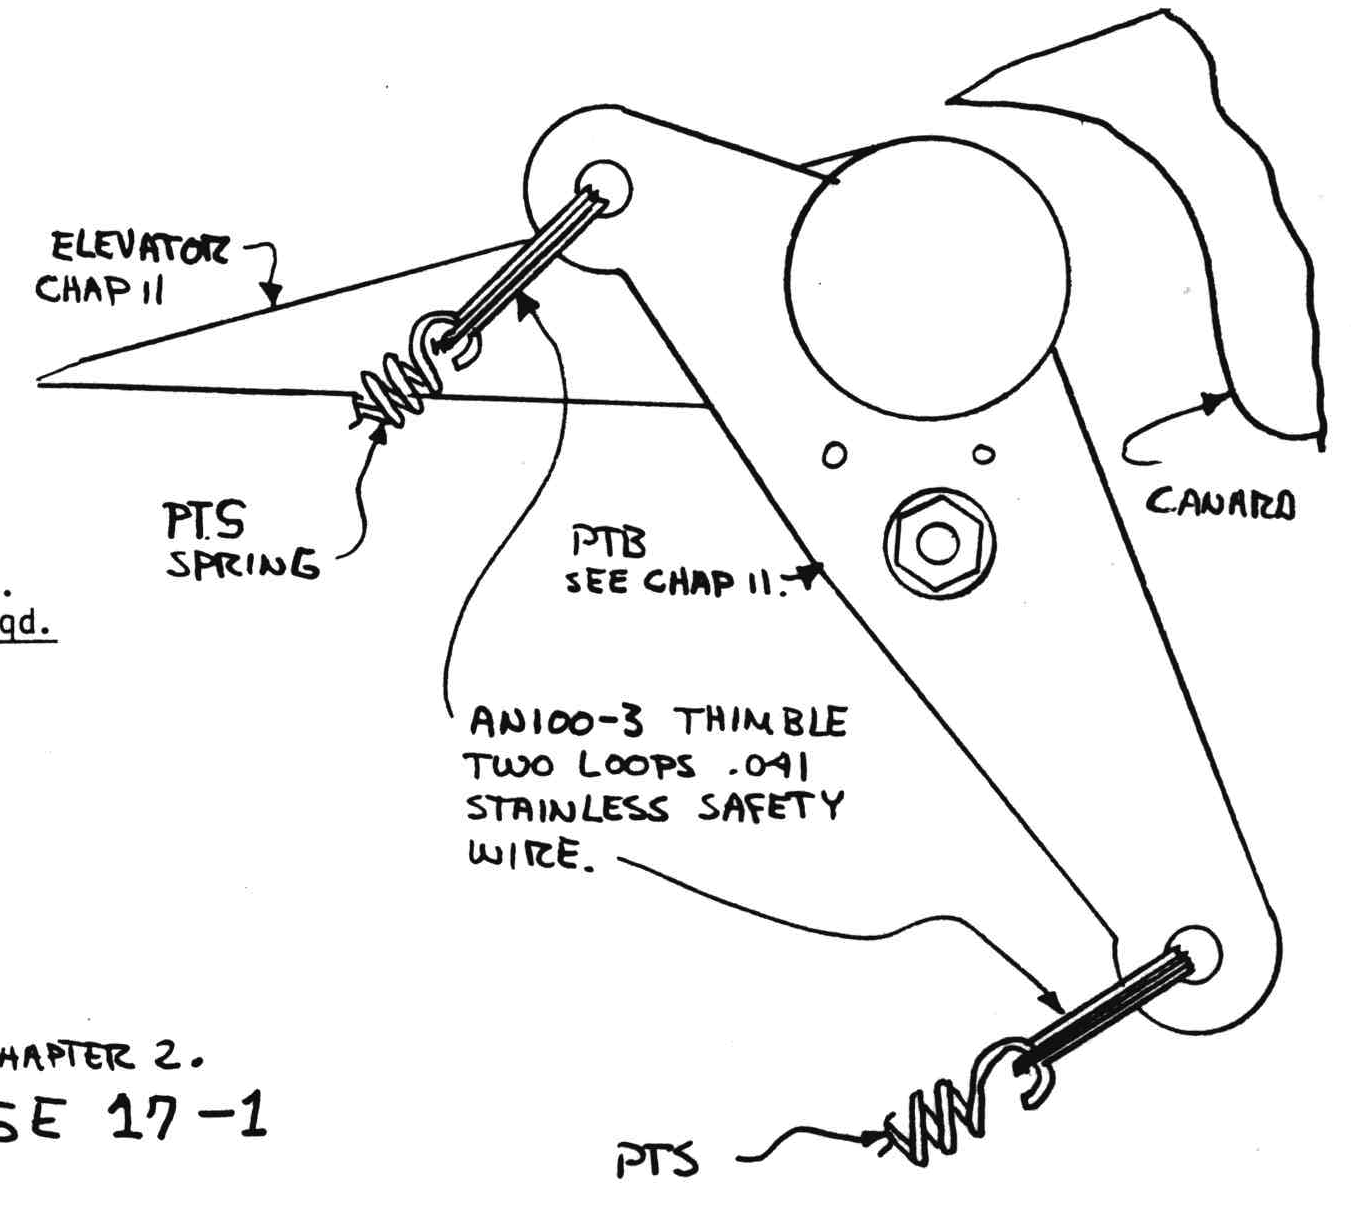 ELEVATOR
CHAP 11
PTS
SPRING
.
qd.
PTB
SEE CHAP 11.
CANARD
AN100-3 THIMBLE
TWO LOOPS .041
STAINLESS SAFETY
WIRE.
HAPTER 2.
SE 17-1
PTS